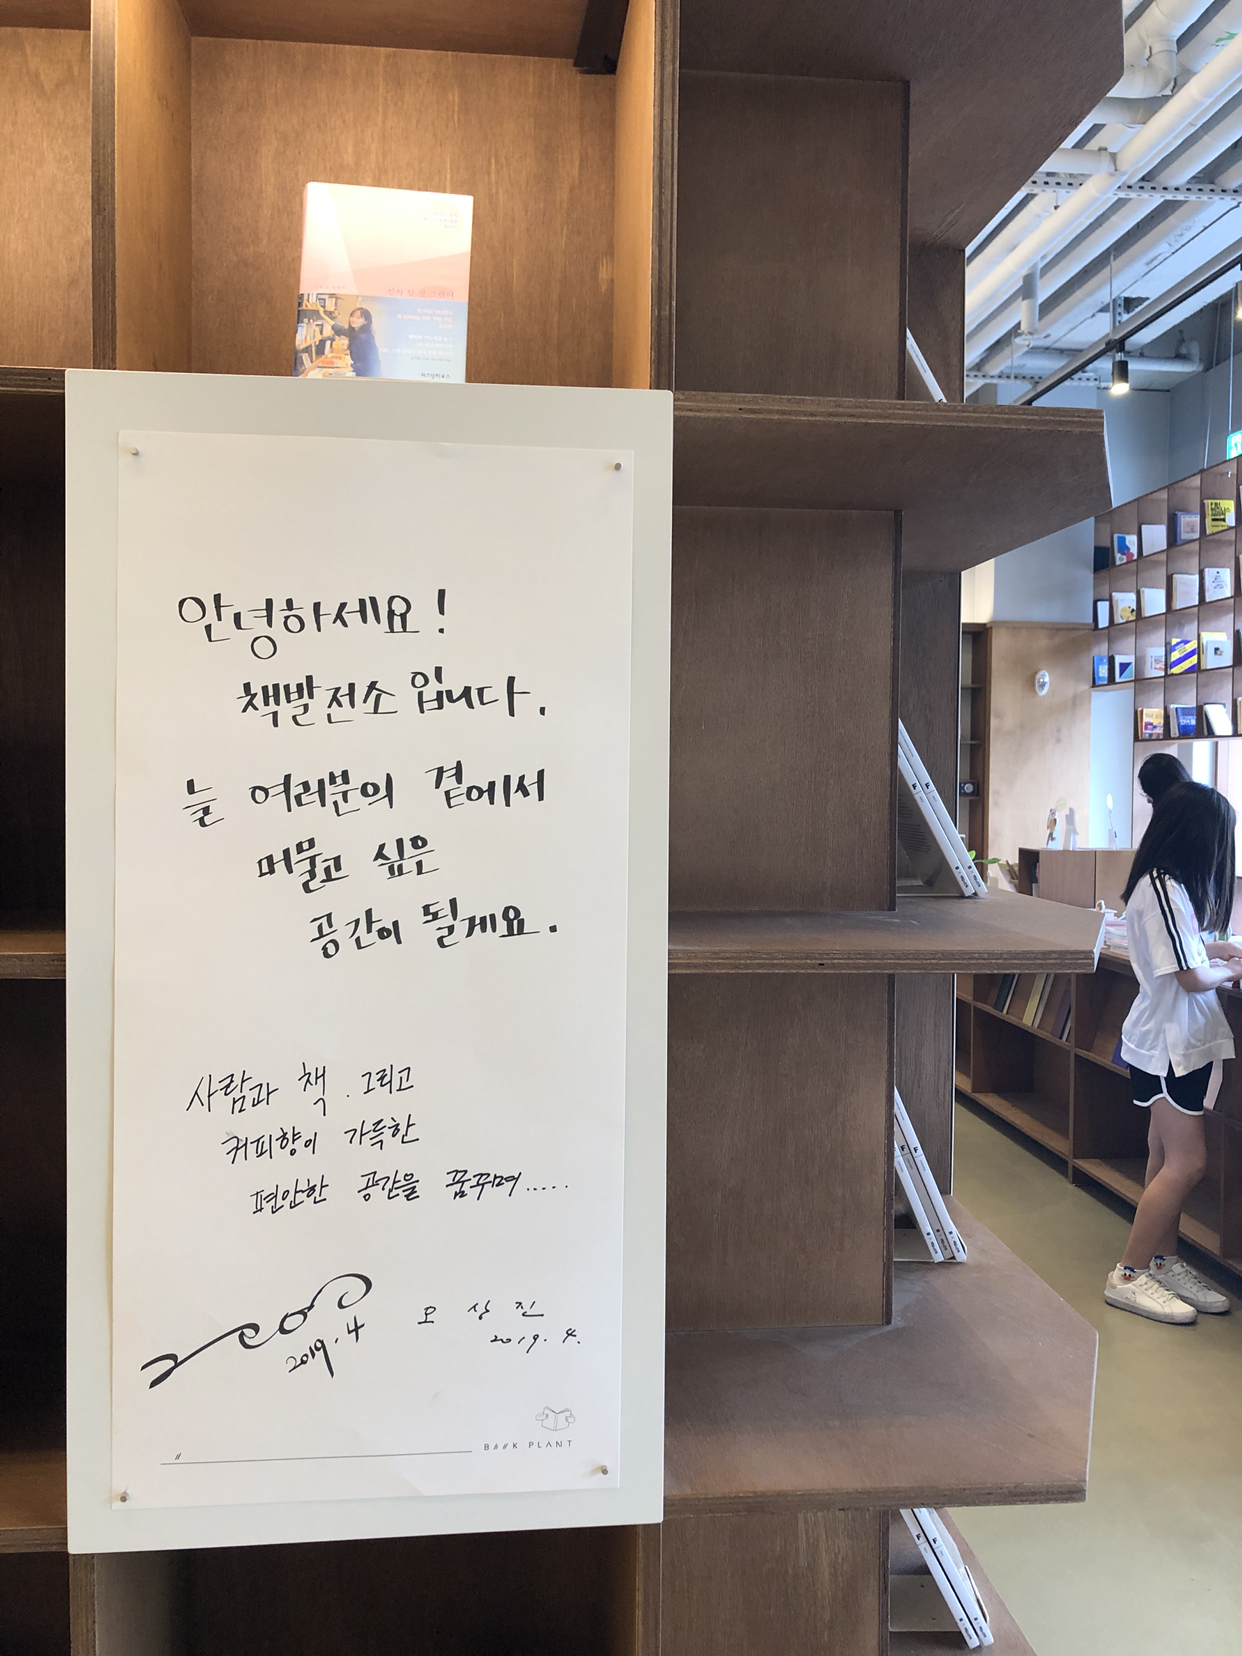 안녕하세요!
책발전소 입니다.
늘 여러분의 곁에서
머물고 싶은
공간이 될게요.
사람과 책. 그리고
커피향이 가득한
편안한 공간을 꿈꾸며.....
2019.4
오상진
2019. 4.
BOOK PLANT